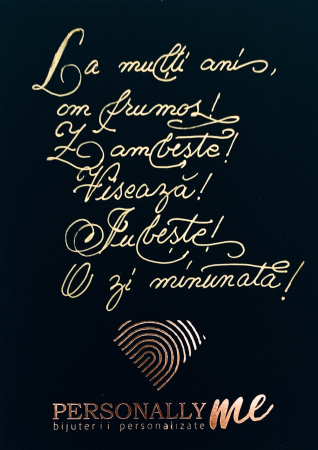 La mulți ani,
om frumos!
Zâmbește!
Visează!
Iubește!
O zi minunată!
PERSONALLY me
bijuterii personalizate